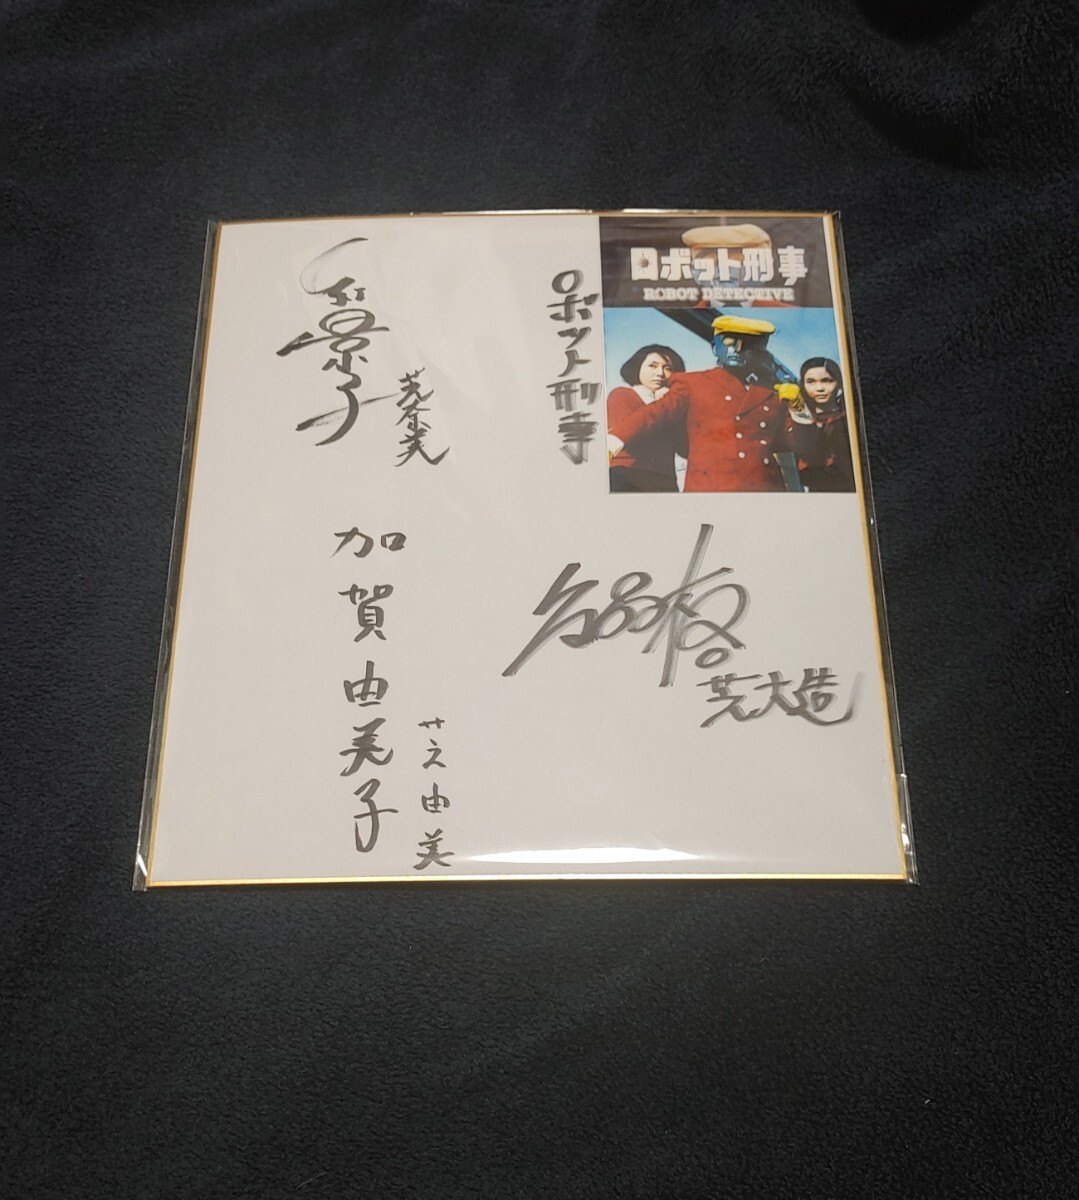 ロボット刑事
ROBOT DETECTIVE
ロボット刑事
芝大造
芝奈美
加賀由美子
芝由美